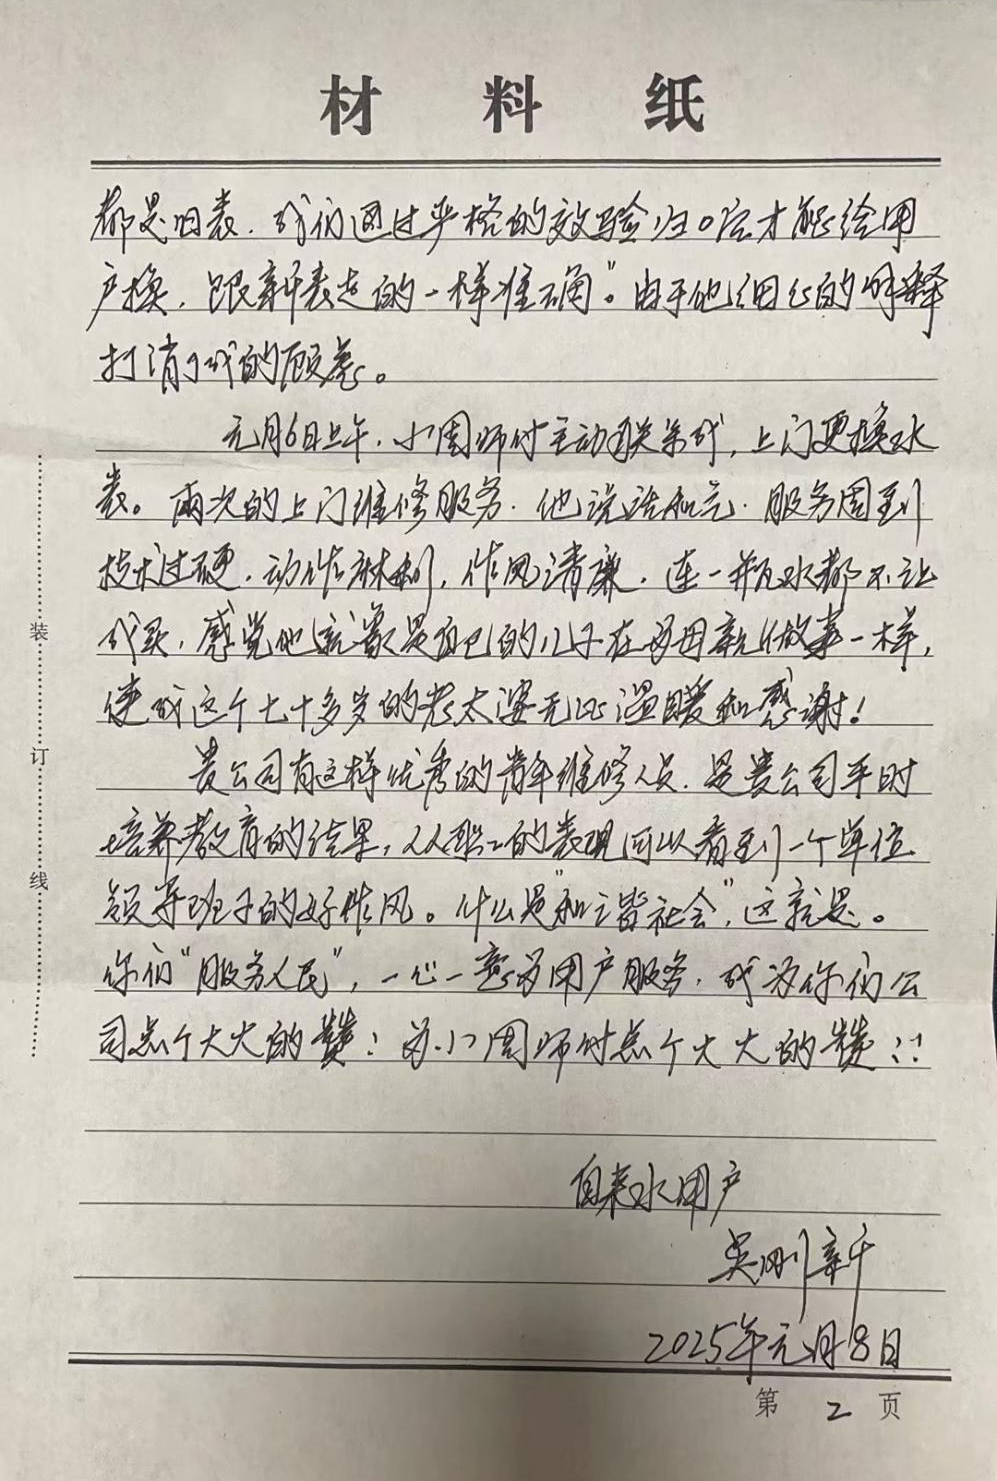 材料纸
都是旧表，我们通过严格的效验归0后才能给用
户换，跟新表走的一样准确”。由于他细心的解释
打消了我的顾虑。
元月6日上午，小周师付主动联系我，上门更换水
表。两次的上门维修服务，他说话和气，服务周到
技术过硬，动作麻利，作风清廉，连一瓶水都不让
我买，感觉他就象是自已的儿子在为母亲做事一样，
使我这个七十多岁的老太婆无比温暖和感谢！
贵公司有这样优秀的青年维修人员，是贵公司平时
培养教育的结果，从职工的表现可以看到一个单位
领导班子的好作风。什么是“和谐社会”，这就是。
你们“服务人民”，一心一意为用户服务，我为你们公
司点个大大的赞！为小周师付点个大大的赞！！
自来水用户
吴刚新
2025年元月8日
第2页
装
订
线